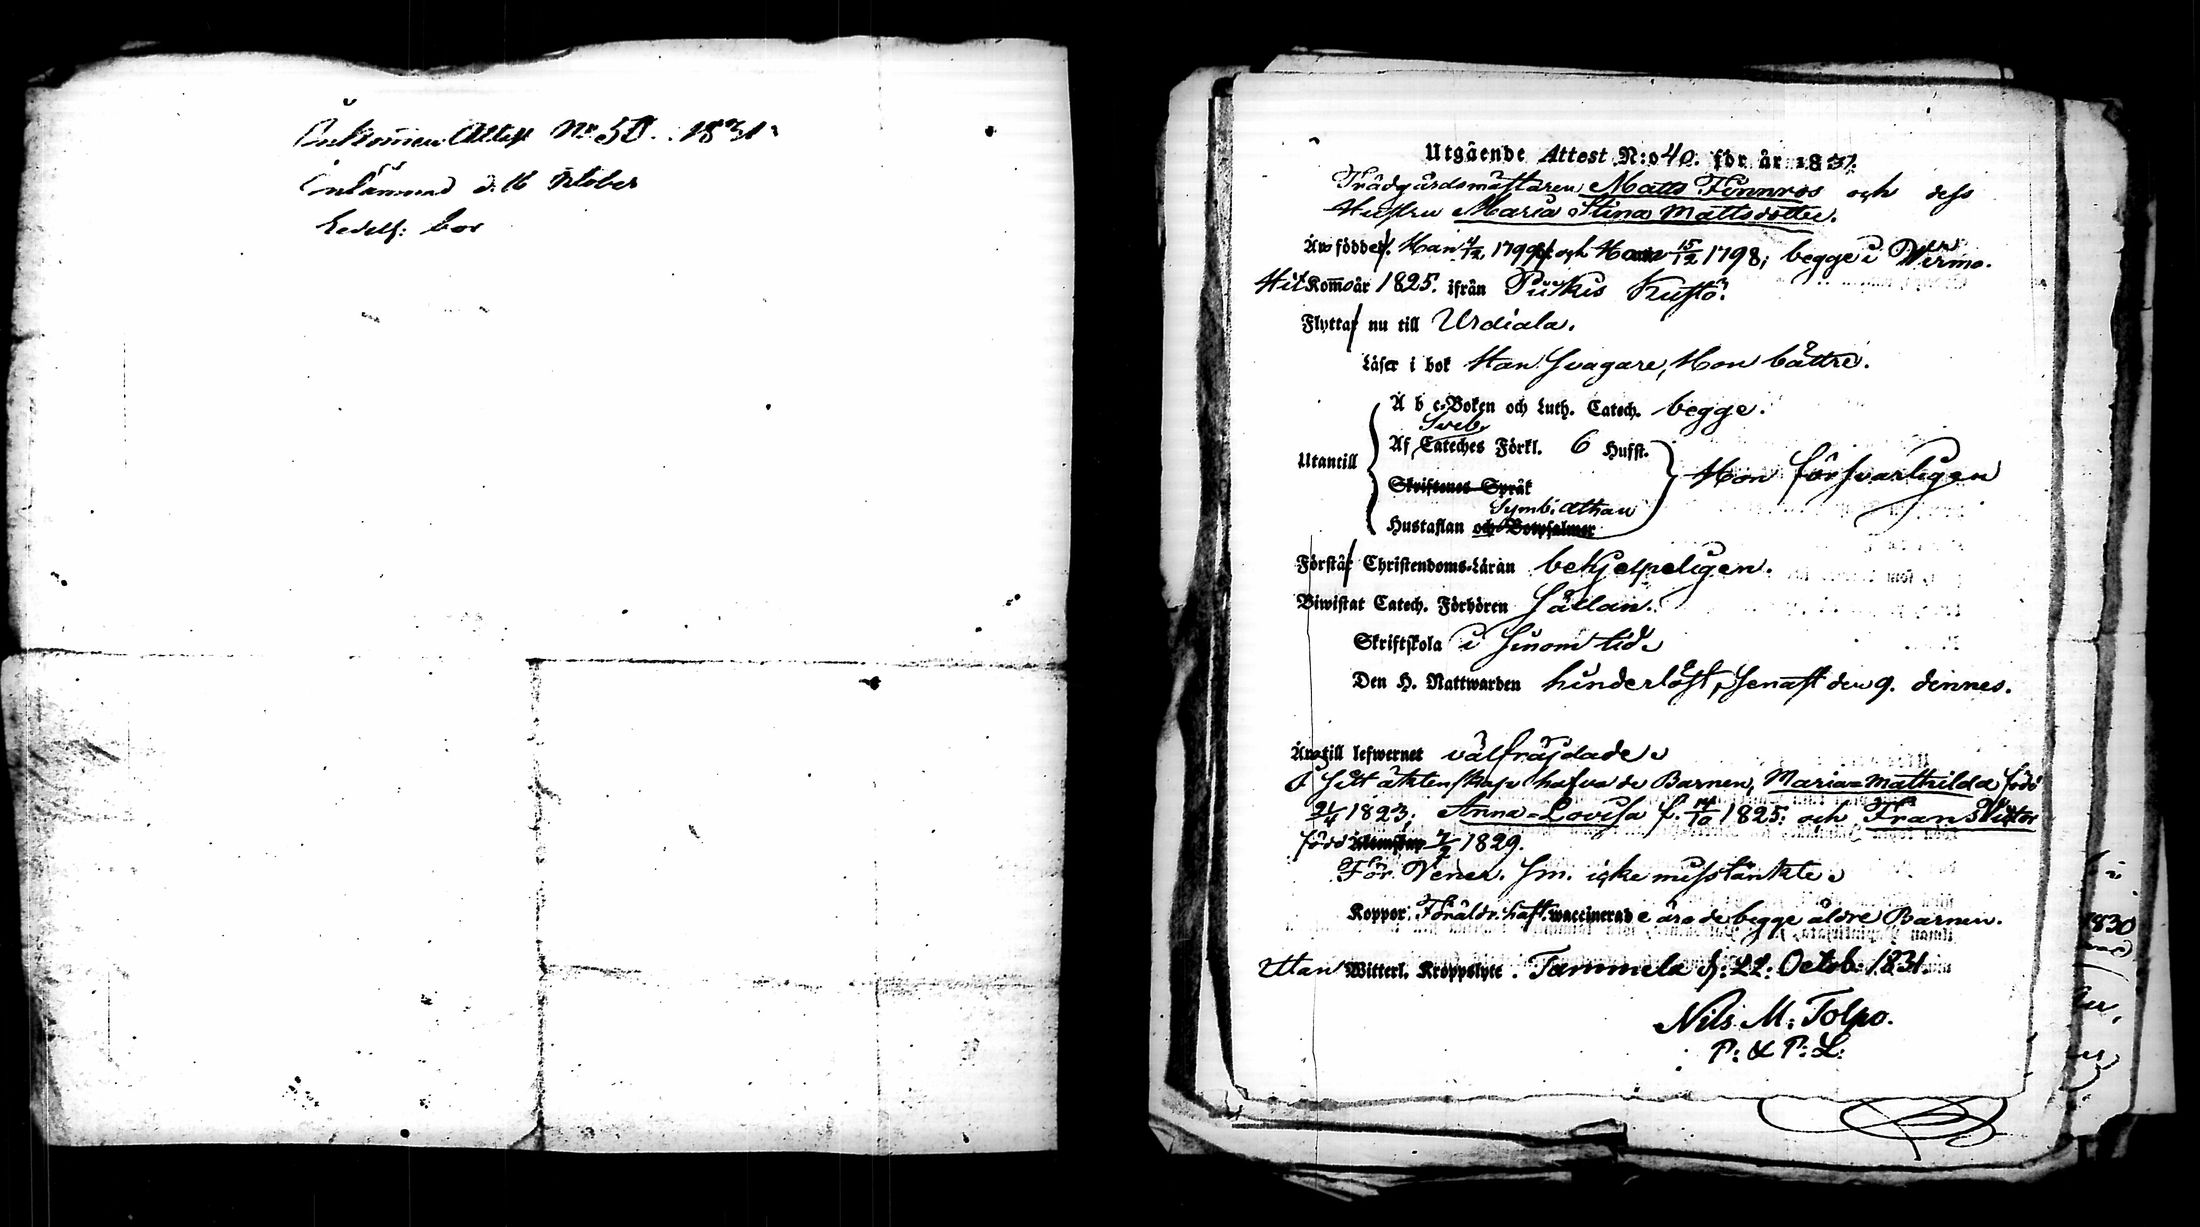 Inkommen Attest No 50. 1831.
inlämnad d. 16 October
Utgående Attest N:o 40. för år 1831.
Trädgårdsmästaren Matts Finnroos och dess
Hustru Maria Stina Mattsdotter.
Äro födde, Han 4/12 1799, och Hon 15/12 1798; begge i Wirmo.
Hit Kom̅o år 1825. ifrån Kustö.
Flytta nu till Urdiala.
Läser i bok Han svagare, Hon bättre.
A b c-Boken och Luth. Catech. begge.
Sveb.
Utantill Af Cateches Förkl. 6 Hufst. Hon försvarligen
Skriftenes Språk
Symb. Athan
Hustaflan och Botpsalmer
Förstå Christendoms-Läran behjelpeligen.
Biwistat Catech. Förhören sällan.
Skriftskola i sinom tid.
Den H. Nattwarden hinderlöst, senast den 9. dennes.
Äro till lefwernet välfräjdade.
I sitt äktenskap hafva de Barnen, Maria-Mathilda född
21/4 1823; Anna-Lovisa f. 14/10 1825; och Frans Victor
född 7/2 1829.
För Vener. Sm. icke misstänkte.
Koppor: Föräldr. haft. waccinerade äro de begge äldre Barnen.
Utan Witterl. Kroppslyte. Tammela d: 22: Octob: 1831.
Nils M: Tolpo.
P: & P: L:
1830